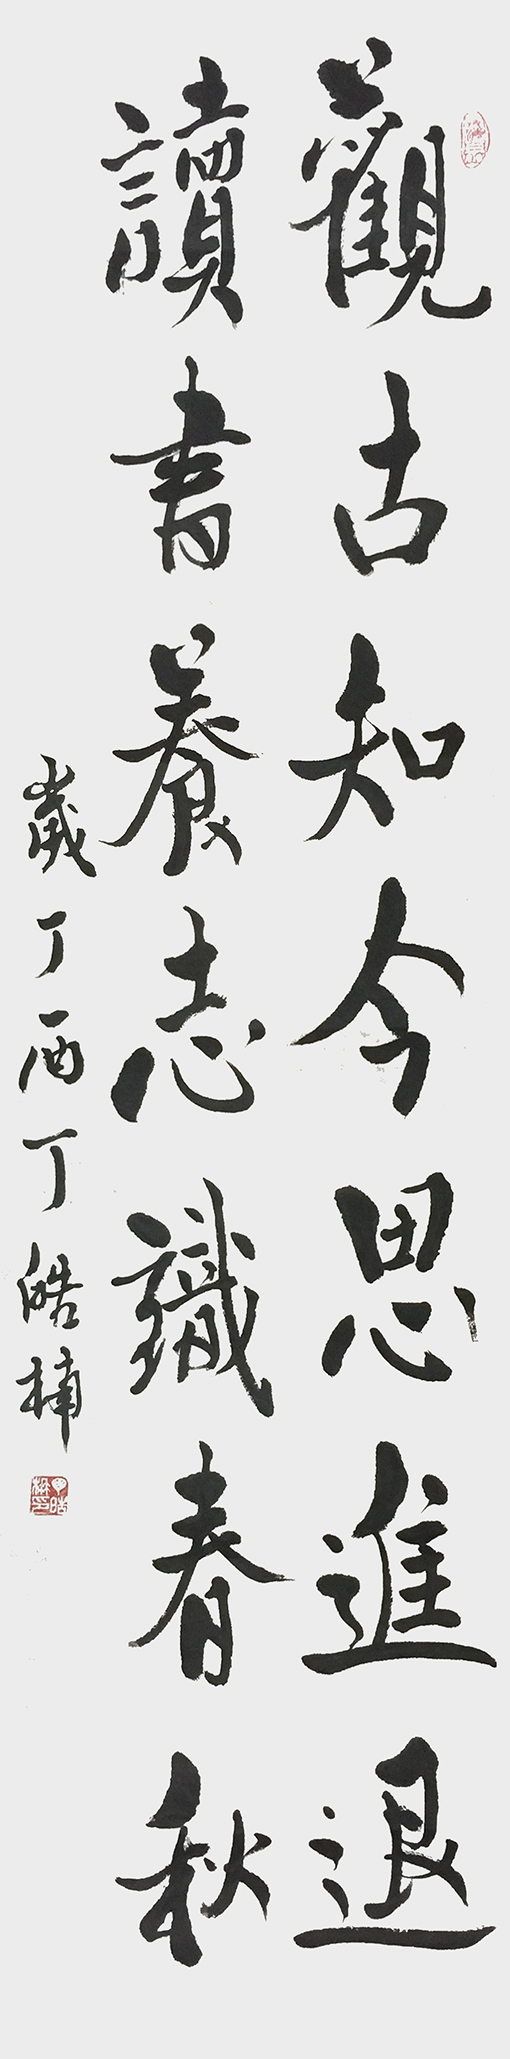 觀古知今思進退
讀書養志識春秋
歲丁酉丁皓楠